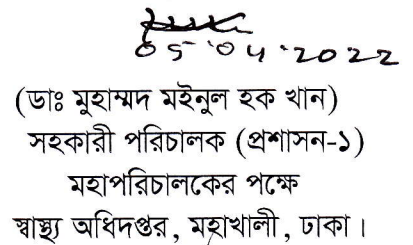 05.04.2022
(ডাঃ মুহাম্মদ মইনুল হক খান)
সহকারী পরিচালক (প্রশাসন-১)
মহাপরিচালকের পক্ষে
স্বাস্থ্য অধিদপ্তর, মহাখালী, ঢাকা।